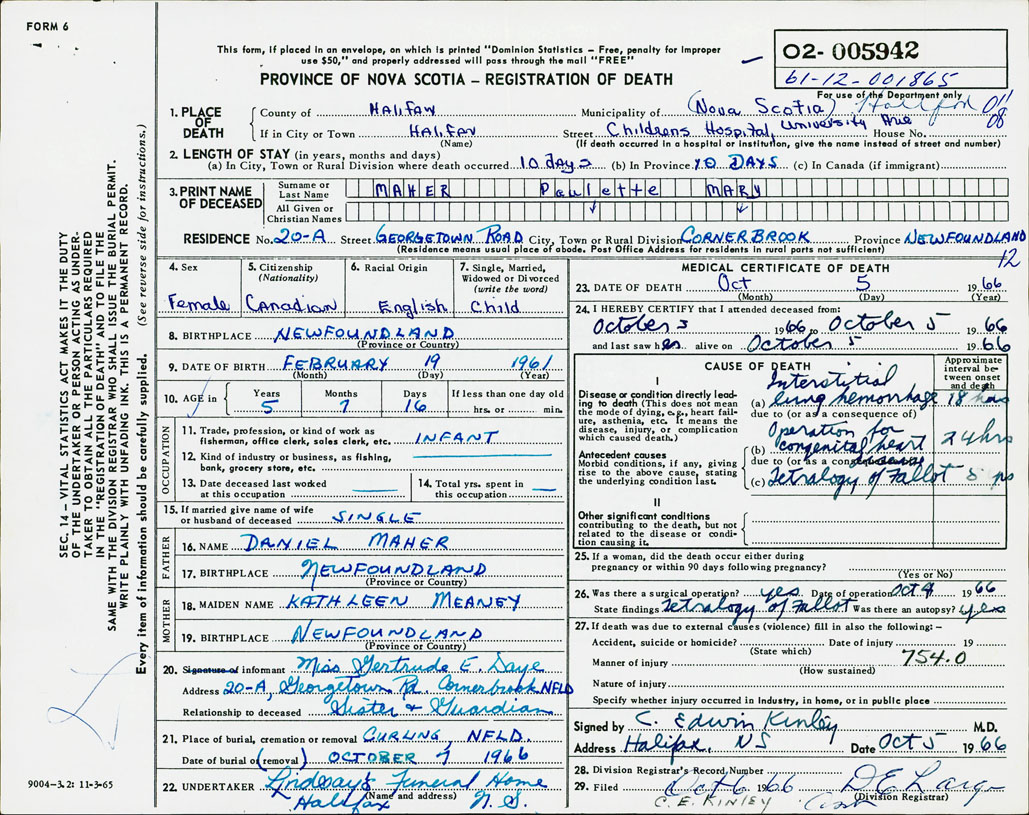 FORM 6
This form, if placed in an envelope, on which is printed "Dominion Statistics – Free, penalty for improper
use $50," and properly addressed will pass through the mail "FREE"
PROVINCE OF NOVA SCOTIA – REGISTRATION OF DEATH
O2- 005942
61-12-001865
For use of the Department only
SEC. 14 – VITAL STATISTICS ACT MAKES IT THE DUTY
OF THE UNDERTAKER OR PERSON ACTING AS UNDER-
TAKER TO OBTAIN ALL THE PARTICULARS REQUIRED
IN THE "REGISTRATION OF DEATH" AND TO FILE THE
SAME WITH THE DIVISION REGISTRAR WHO SHALL ISSUE THE BURIAL PERMIT.
WRITE PLAINLY WITH UNFADING INK. THIS IS A PERMANENT RECORD.
Every item of information should be carefully supplied. (See reverse side for instructions.)
1. PLACE OF DEATH
County of HALIFAX Municipality of (Nova Scotia) Halifax 011
08
If in City or Town HALIFAX Street Childrens Hospital, University Ave House No.
(Name) (If death occurred in a hospital or institution, give the name instead of street and number)
2. LENGTH OF STAY (in years, months and days)
(a) In City, Town or Rural Division where death occurred 10 days (b) In Province 10 DAYS (c) In Canada (if immigrant)
3. PRINT NAME OF DECEASED
Surname or Last Name MAHER Paulette MARY
All Given or Christian Names
RESIDENCE No. 20-A Street GEORGETOWN ROAD City, Town or Rural Division CORNERBROOK Province NEWFOUNDLAND
(Residence means usual place of abode. Post Office Address for residents in rural parts not sufficient)
12
4. Sex 5. Citizenship (Nationality) 6. Racial Origin 7. Single, Married, Widowed or Divorced (write the word)
Female Canadian English Child
8. BIRTHPLACE NEWFOUNDLAND
(Province or Country)
9. DATE OF BIRTH FEBRUARY 19 1961
(Month) (Day) (Year)
10. AGE in Years Months Days If less than one day
5 7 16 hrs. or min.
OCCUPATION
11. Trade, profession, or kind of work as
fisherman, office clerk, sales clerk, etc. INFANT
12. Kind of industry or business, as fishing,
bank, grocery store, etc.
13. Date deceased last worked at this occupation 14. Total yrs. spent in this occupation
15. If married give name of wife
or husband of deceased SINGLE
FATHER
16. NAME DANIEL MAHER
17. BIRTHPLACE NEWFOUNDLAND
(Province or Country)
MOTHER
18. MAIDEN NAME KATHLEEN MEANEY
19. BIRTHPLACE NEWFOUNDLAND
(Province or Country)
20. Signature of informant Miss Gertrude E. Daye
Address 20-A, Georgetown Rd. Cornerbrook NFLD
Relationship to deceased Sister & Guardian
21. Place of burial, cremation or removal CURLING, NFLD.
Date of burial or (removal) OCTOBER 7 1966
22. UNDERTAKER Lindsay's Funeral Home
(Name and address)
Halifax N.S.
9004–3.2: 11-3-65
MEDICAL CERTIFICATE OF DEATH
23. DATE OF DEATH Oct 5 1966
(Month) (Day) (Year)
24. I HEREBY CERTIFY that I attended deceased from:
October 3 1966 to October 5 1966
and last saw her alive on October 5 1966
CAUSE OF DEATH
Approximate interval between onset and death
I
Disease or condition directly lead-
ing to death (This does not mean
the mode of dying, e.g., heart fail-
ure, asthenia, etc. It means the
disease, injury, or complication
which caused death.)
Interstitial
(a) lung hemorrhage 18 hrs
due to (or as a consequence of)
Antecedent causes
Morbid conditions, if any, giving
rise to the above cause, stating
the underlying condition last.
Operation for
(b) congenital heart 24 hrs
due to (or as a consequence
(c) Tetralogy of Fallot
II
Other significant conditions
contributing to the death, but not
related to the disease or condi-
tion causing it.
25. If a woman, did the death occur either during
pregnancy or within 90 days following pregnancy?
(Yes or No)
26. Was there a surgical operation? yes Date of operation Oct 4 1966
State findings Tetralogy of Fallot Was there an autopsy? yes
27. If death was due to external causes (violence) fill in also the following:–
Accident, suicide or homicide? Date of injury 19
(State which)
754.0
Manner of injury
(How sustained)
Nature of injury
Specify whether injury occurred in Industry, in home, or in public place
Signed by C. Edwin Kinley M.D.
Address Halifax, NS Date Oct 5 1966
28. Division Registrar's Record Number
29. Filed Oct 6 1966
(Division Registrar)
C. E. KINLEY